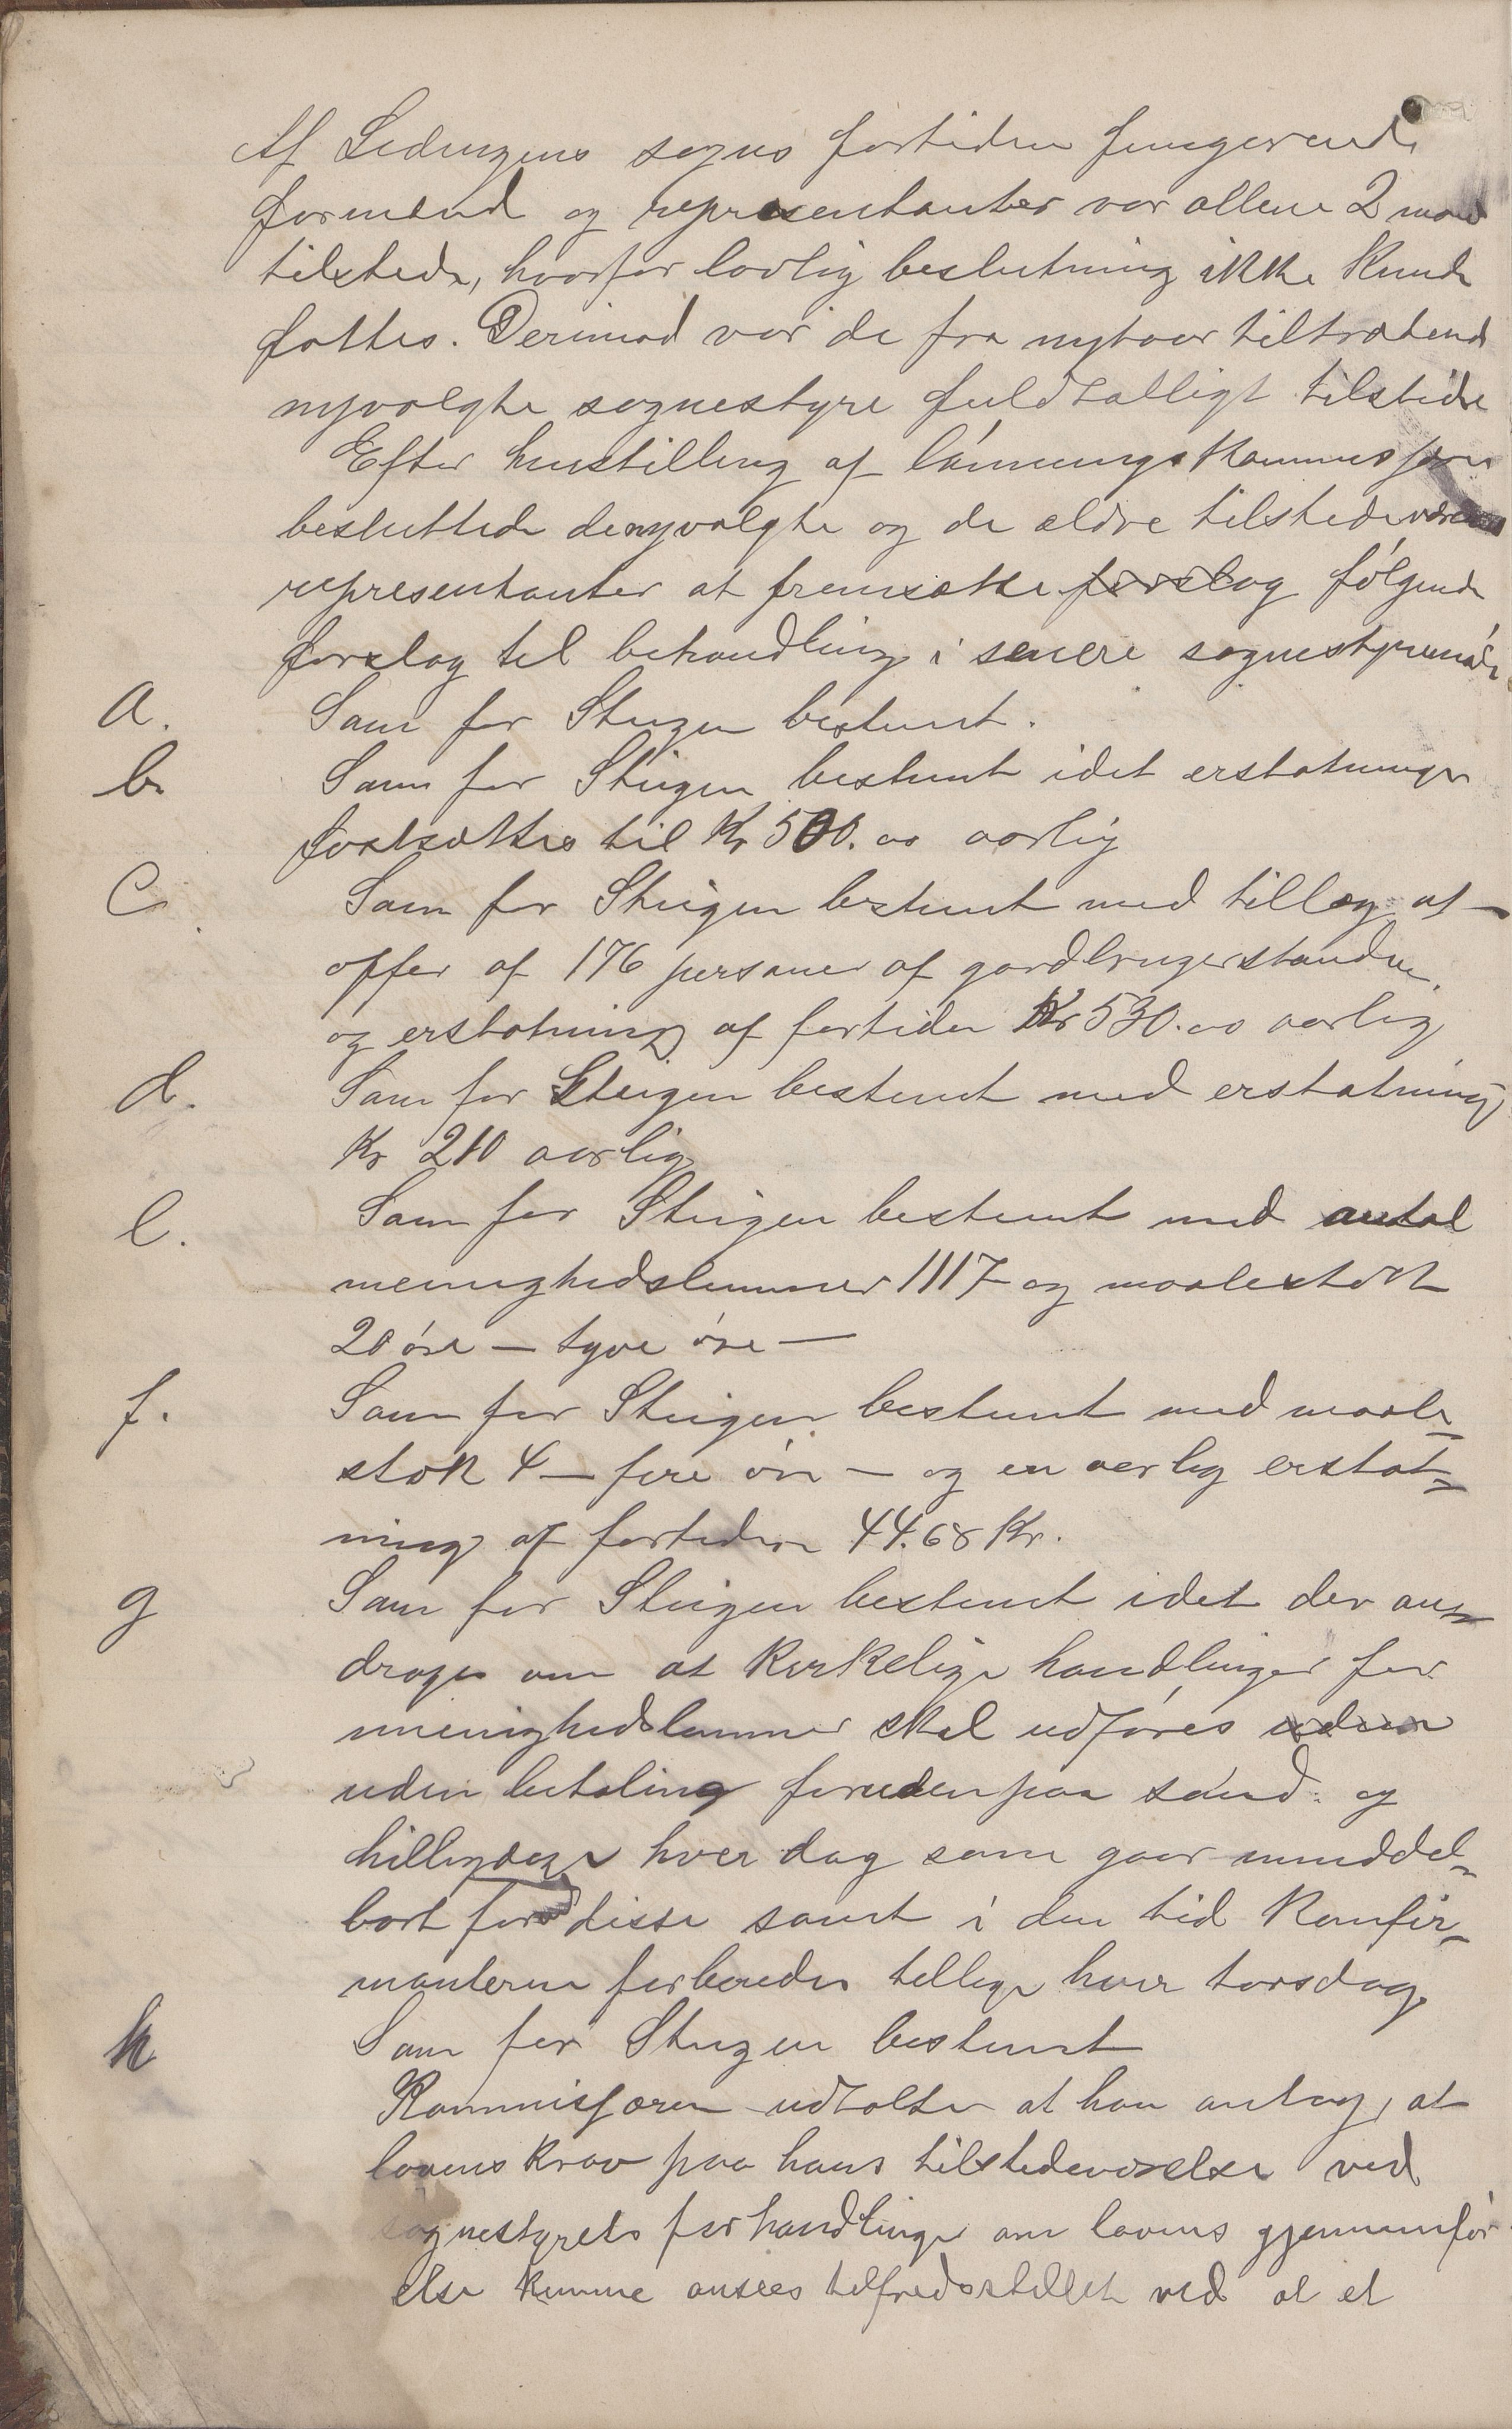 Af Ledingens sogns fortiden fungerende
formænd og representanter var allene 2 mænd
tilstede, hvorfor lovlig beslutning ikke kunde
fattes. Derimod var de fra nytaar tiltrædende
nyvalgte sognestyre fuldtalligt tilstede
Efter henstilling af lönningskommisjonen
besluttede de nyvalgte og de ældre tilstedeværende
representanter at fremsætte forslag fölgende
forslag til behandling i senere sognestyremöde
a. Som for Steigen bestemt.
b. Som for Steigen bestemt idet erstatningen
fastsættes til Kr 500.00 aarlig
c. Som for Steigen bestemt med tillæg af
offer af 176 personer af gardbrugerstanden
og erstatning af fortiden Kr 530.00 aarlig
d. Som for Steigen bestemt med erstatning
Kr 210 aarlig
e. Som for Steigen bestemt med antal
menighedslemmer 1117 og maalestok
20 öre — tyve öre —
f. Som for Steigen bestemt med maale-
stok 4 — fire öre — og en aarlig erstat-
ning af fortiden 44.68 Kr.
g Som for Steigen bestemt idet der an-
drages om at kirkelige handlinger for
menighedslemmer skal udföres uden
uden betaling foruden paa sönd. og
helligdage hver dag som gaar umiddel-
bart forud disse samt i den tid konfir-
manterne forberedes tillige hver torsdag.
h Som for Steigen bestemt
Kommisjæren udtalte at han antog, at
lovens krav paa hans tilstedeværelse ved
sognestyrets forhandlinger om lovens gjennemför-
else kunne ansees tilfredsstillet ved at et